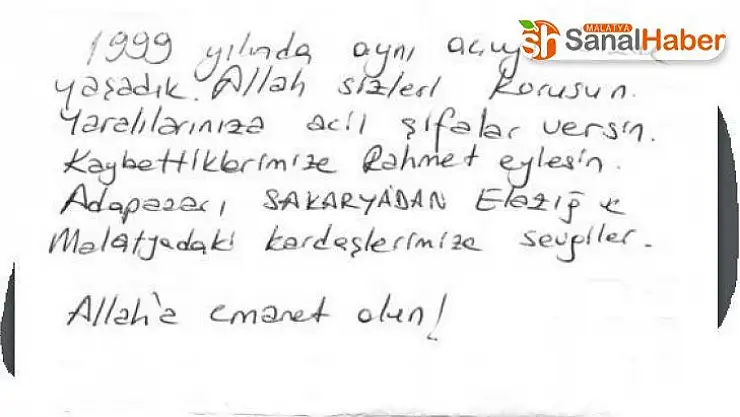 MALATYA
SanalHaber
1999 yılında aynı acıy
yaşadık. Allah sizleri korusun.
Yaralılarınıza acil şifalar versin.
Kaybettiklerimize Rahmet eylesin.
Adapazarı SAKARYA'DAN Elazığ ve
Malatyadaki kardeşlerimize sevgiler.
Allah'a emanet olun!